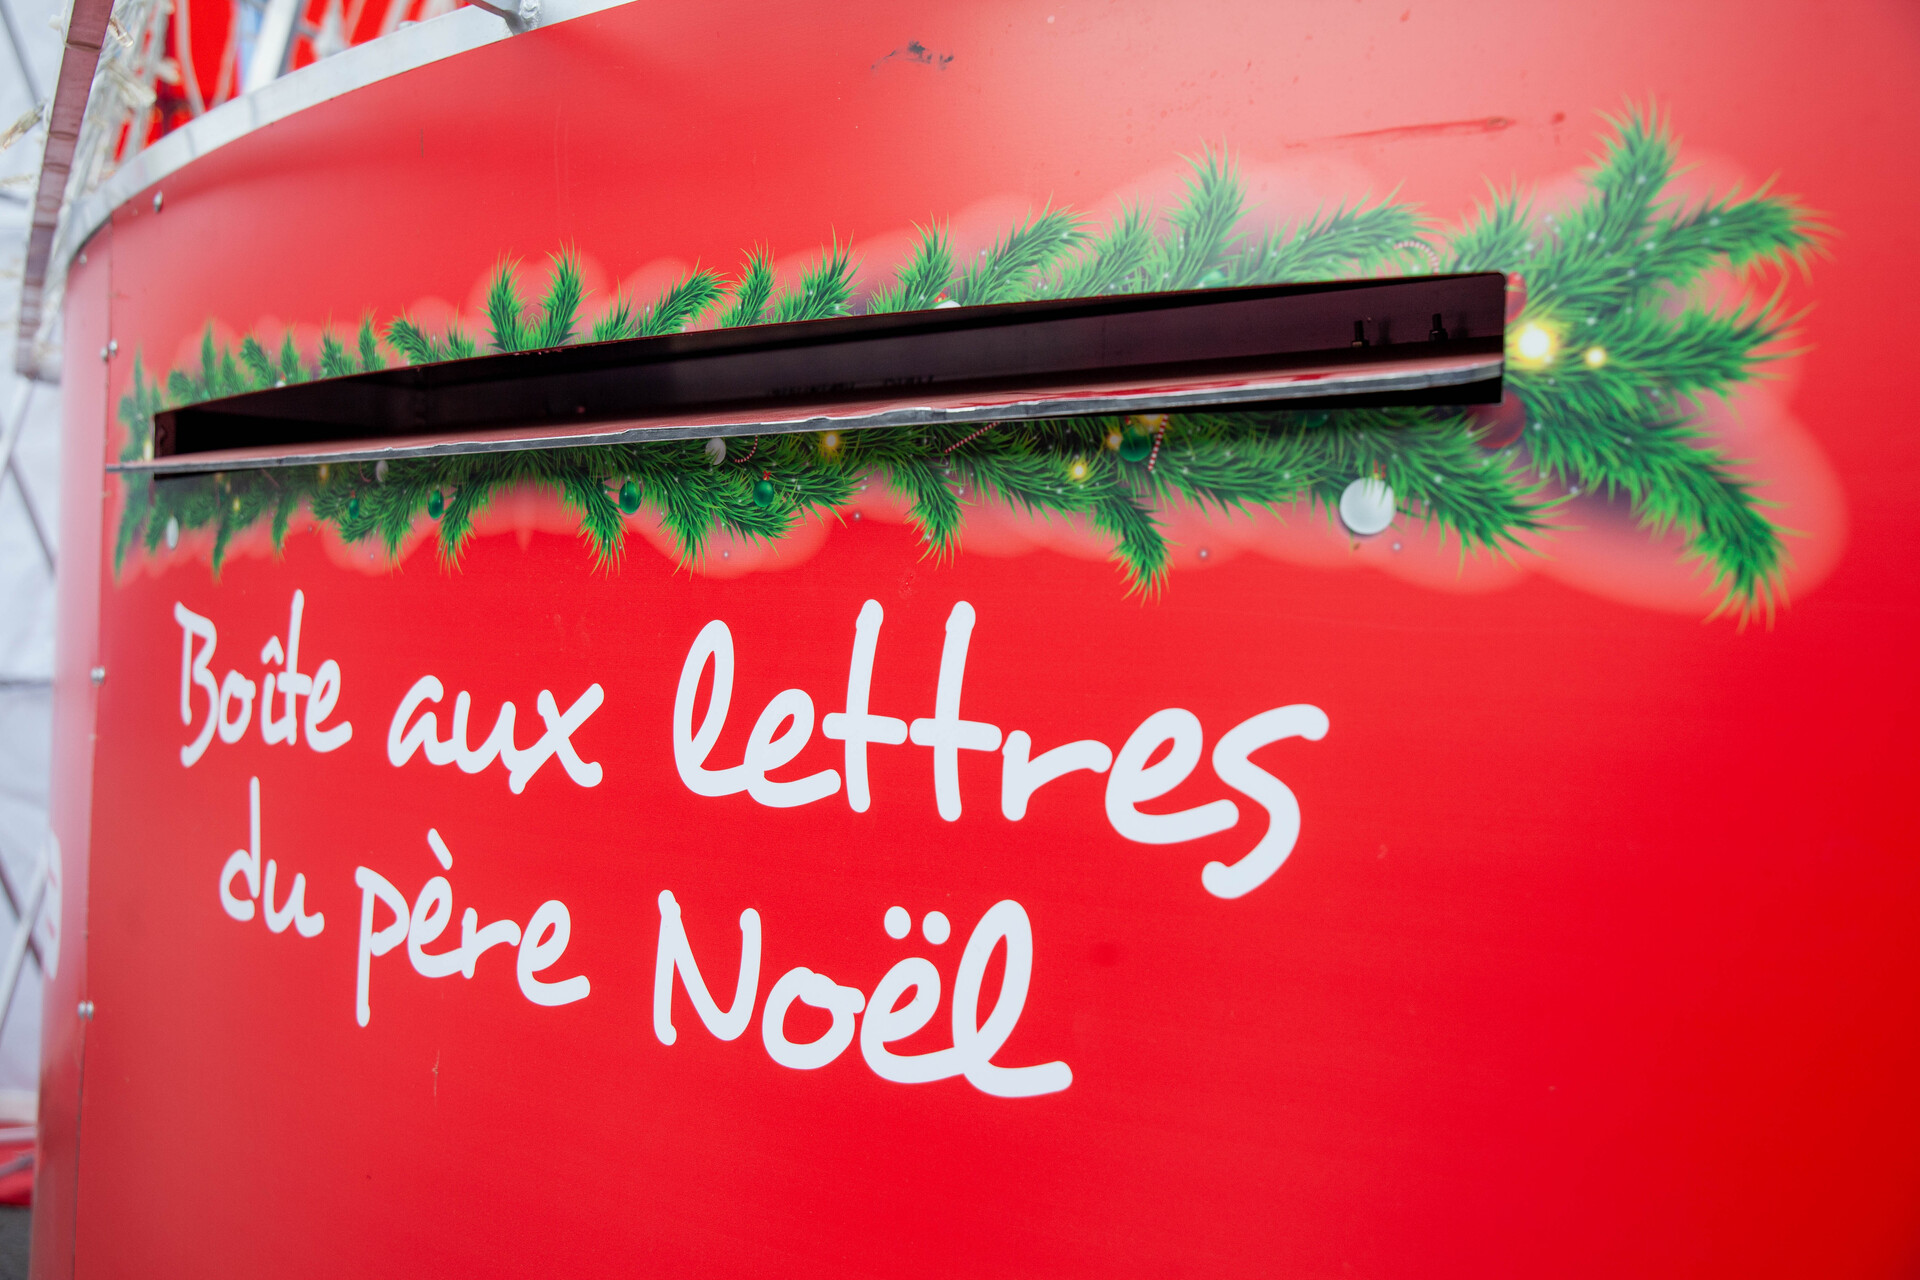 Boîte aux lettres
du père Noël